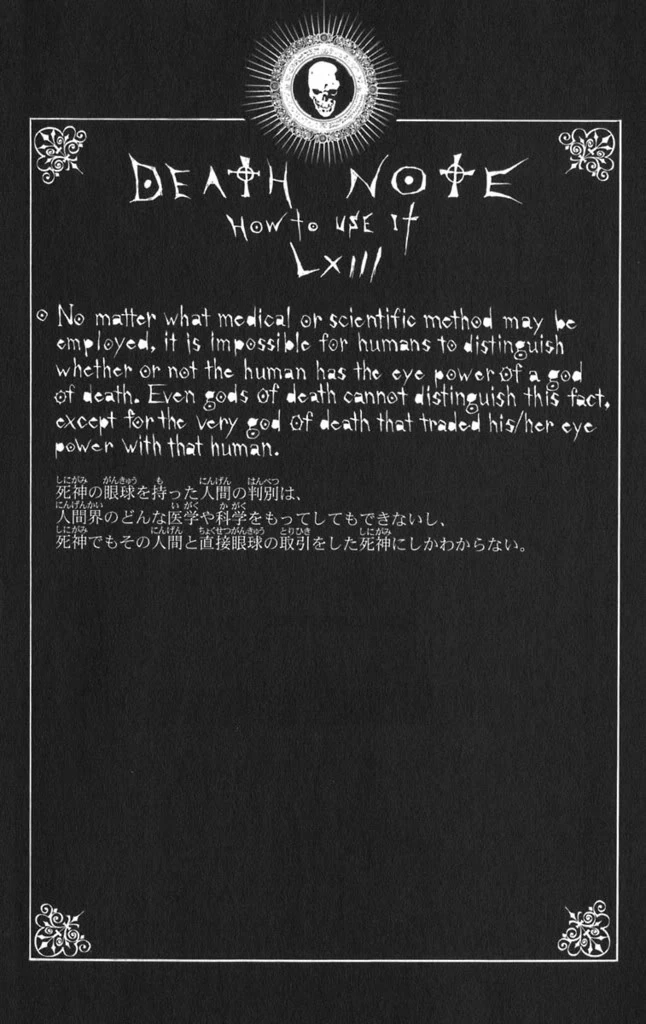 DEATH NOTE
HOW to USE It
LXIII
No matter what medical or scientific method may be
employed, it is impossible for humans to distinguish
whether or not the human has the eye power of a god
of death. Even gods of death cannot distinguish this fact,
except for the very god of death that traded his/her eye
power with that human.
しにがみ がんきゅう も にんげん はんべつ
死神の眼球を持った人間の判別は、
にんげんかい い がく か がく
人間界のどんな医学や科学をもってしてもできないし、
しにがみ にんげん ちょくせつがんきゅう とりひき しにがみ
死神でもその人間と直接眼球の取引をした死神にしかわからない。